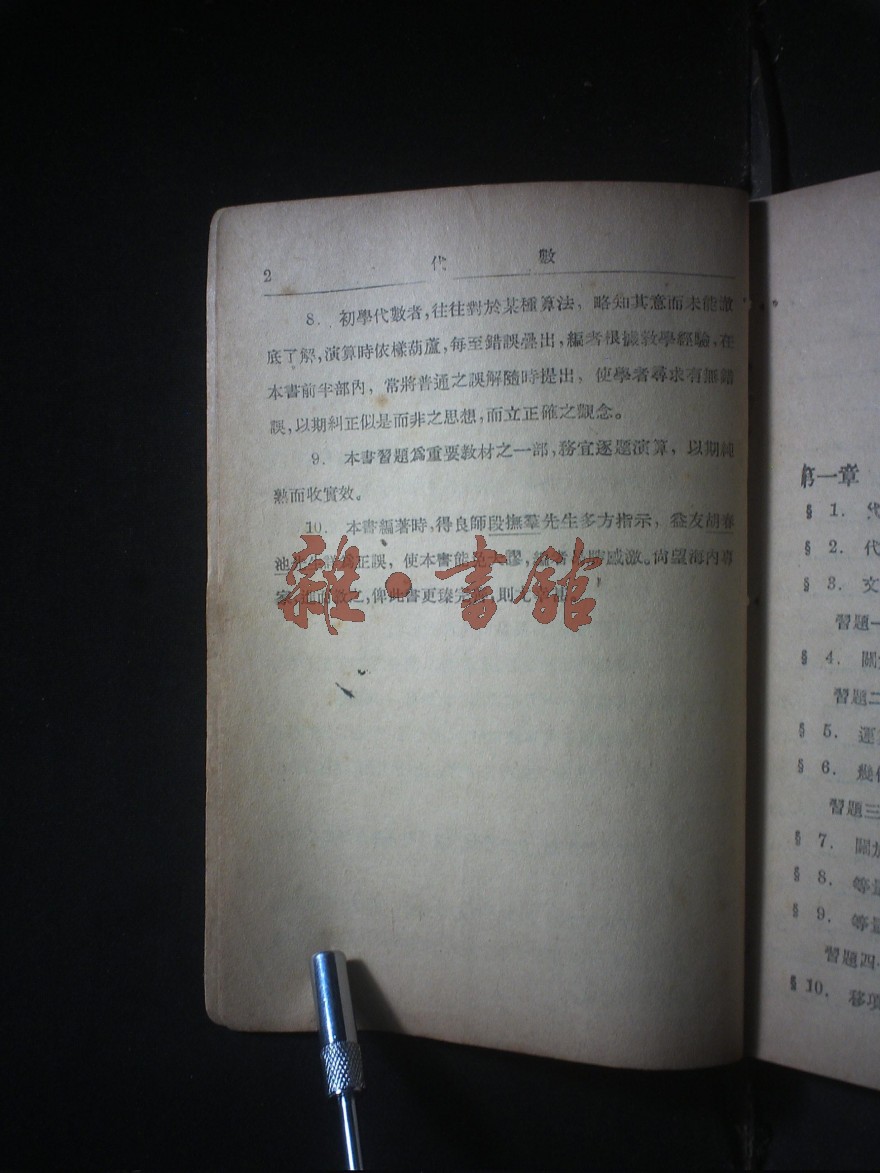 2 代 數
8. 初學代數者,往往對於某種算法、略知其意而未能澈
底了解,演算時依樣葫蘆,每至錯誤疊出,編者根據敎學經驗,在
本書前半部內,常將普通之誤解隨時提出,使學者尋求有無錯
誤,以期糾正似是而非之思想,而立正確之觀念。
9. 本書習題爲重要教材之一部,務宜逐題演算,以期純
熟而收實效。
10. 本書編著時,得良師段撫羣先生多方指示,益友胡春
池先生 正誤,使本書能免大謬,編者 感激。尚望海內專
家, 之,俾此書更臻完 則
雜·書館
第一章
§ 1. 代
§ 2. 代
§ 3. 文
習題一
§ 4. 關
習題二
§ 5. 運
§ 6. 幾
習題三
§ 7. 關
§ 8. 等
§ 9. 等
習題四
§ 10. 移項